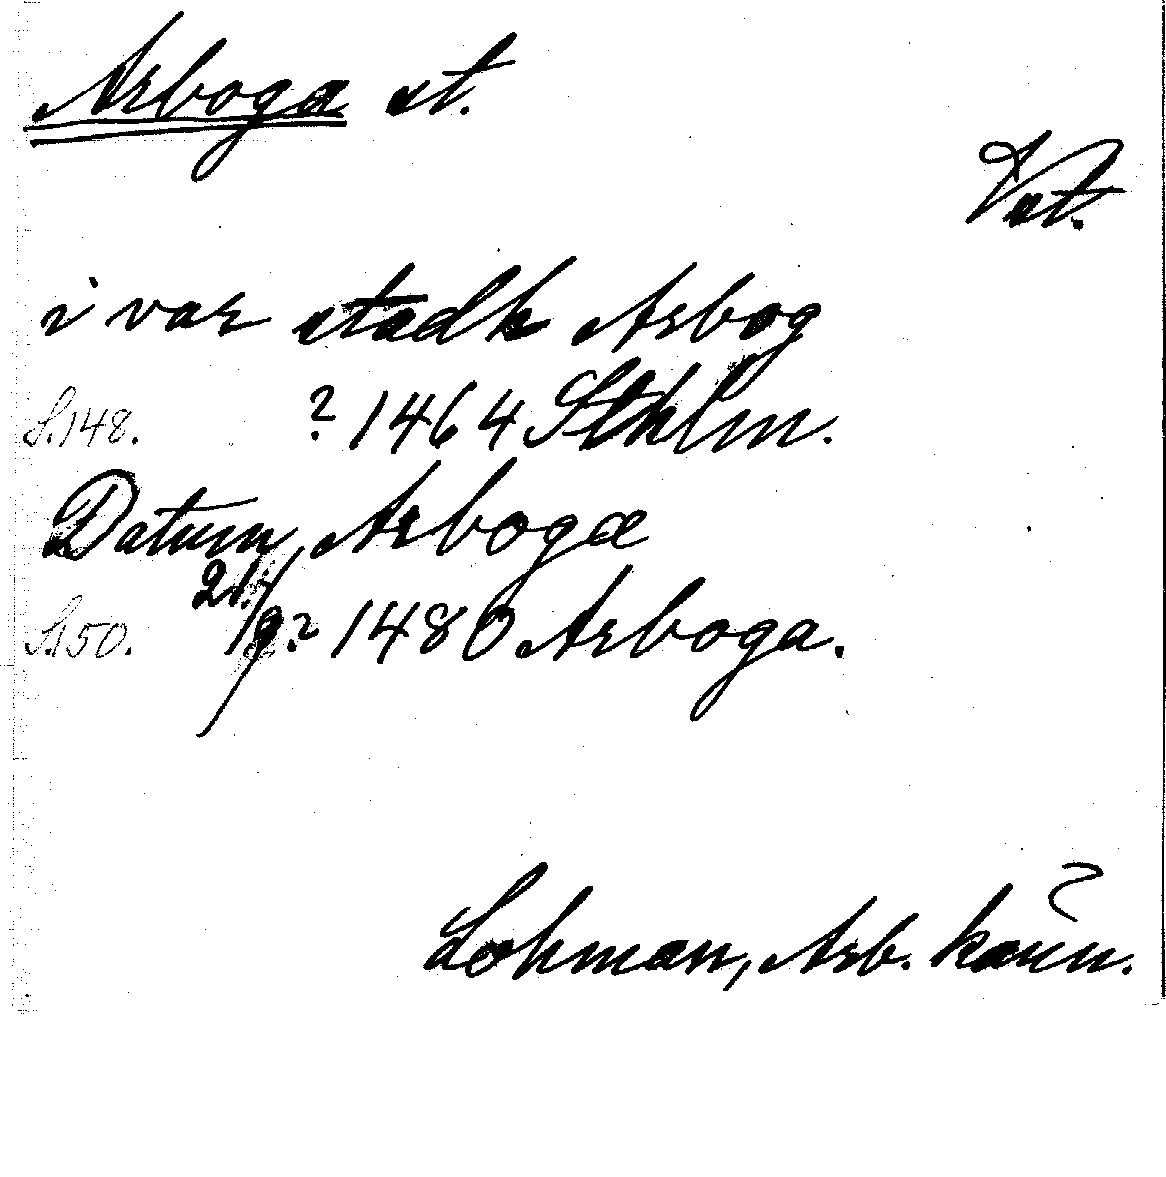 Arboga st.
Vst.
i var stadh Arbog
S.148. ? 1464 Sthlm.
Datum Arbogæ
S.150. 21/9? 1480 Arboga.
Lohman, Arb. känn.